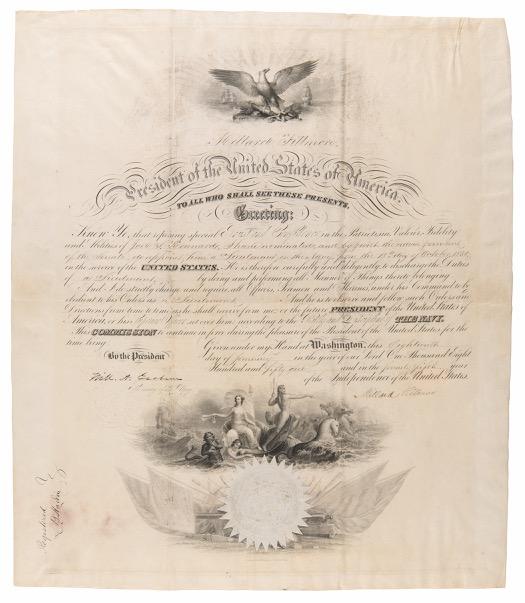 Millard Fillmore
President of the United States of America.
TO ALL WHO SHALL SEE THESE PRESENTS,
Greeting:
Know Ye, that reposing special Trust in the Patriotism, Valour, Fidelity
and Abilities of I have nominated, and by and with the advice and consent
of the Senate, do appoint him a Lieutenant in the Navy from the of October
in the service of the UNITED STATES. He is therefore carefully and diligently to discharge the Duties
of a Lieutenant by doing and performing all Manner of Things thereto belonging.
And I do strictly charge and require all Officers, Seamen and Marines, under his Command to be o-
bedient to his Orders as a Lieutenant And he is to observe and follow such Orders and
Directions from time to time as he shall receive from me, or the future PRESIDENT of the United States of
America, or his Superior Officer set over him, according to the of THE NAVY.
This COMMISSION to continue in force during the pleasure of the President of the United States, for the
time being.
Given under my Hand at Washington, this Eighteenth
By the President
day of in the year of our Lord One Thousand Eight
Hundred and fifty one and in the Seventy fifth year
of the Independence of the United States.
Will. A. Graham
Millard Fillmore
Registered